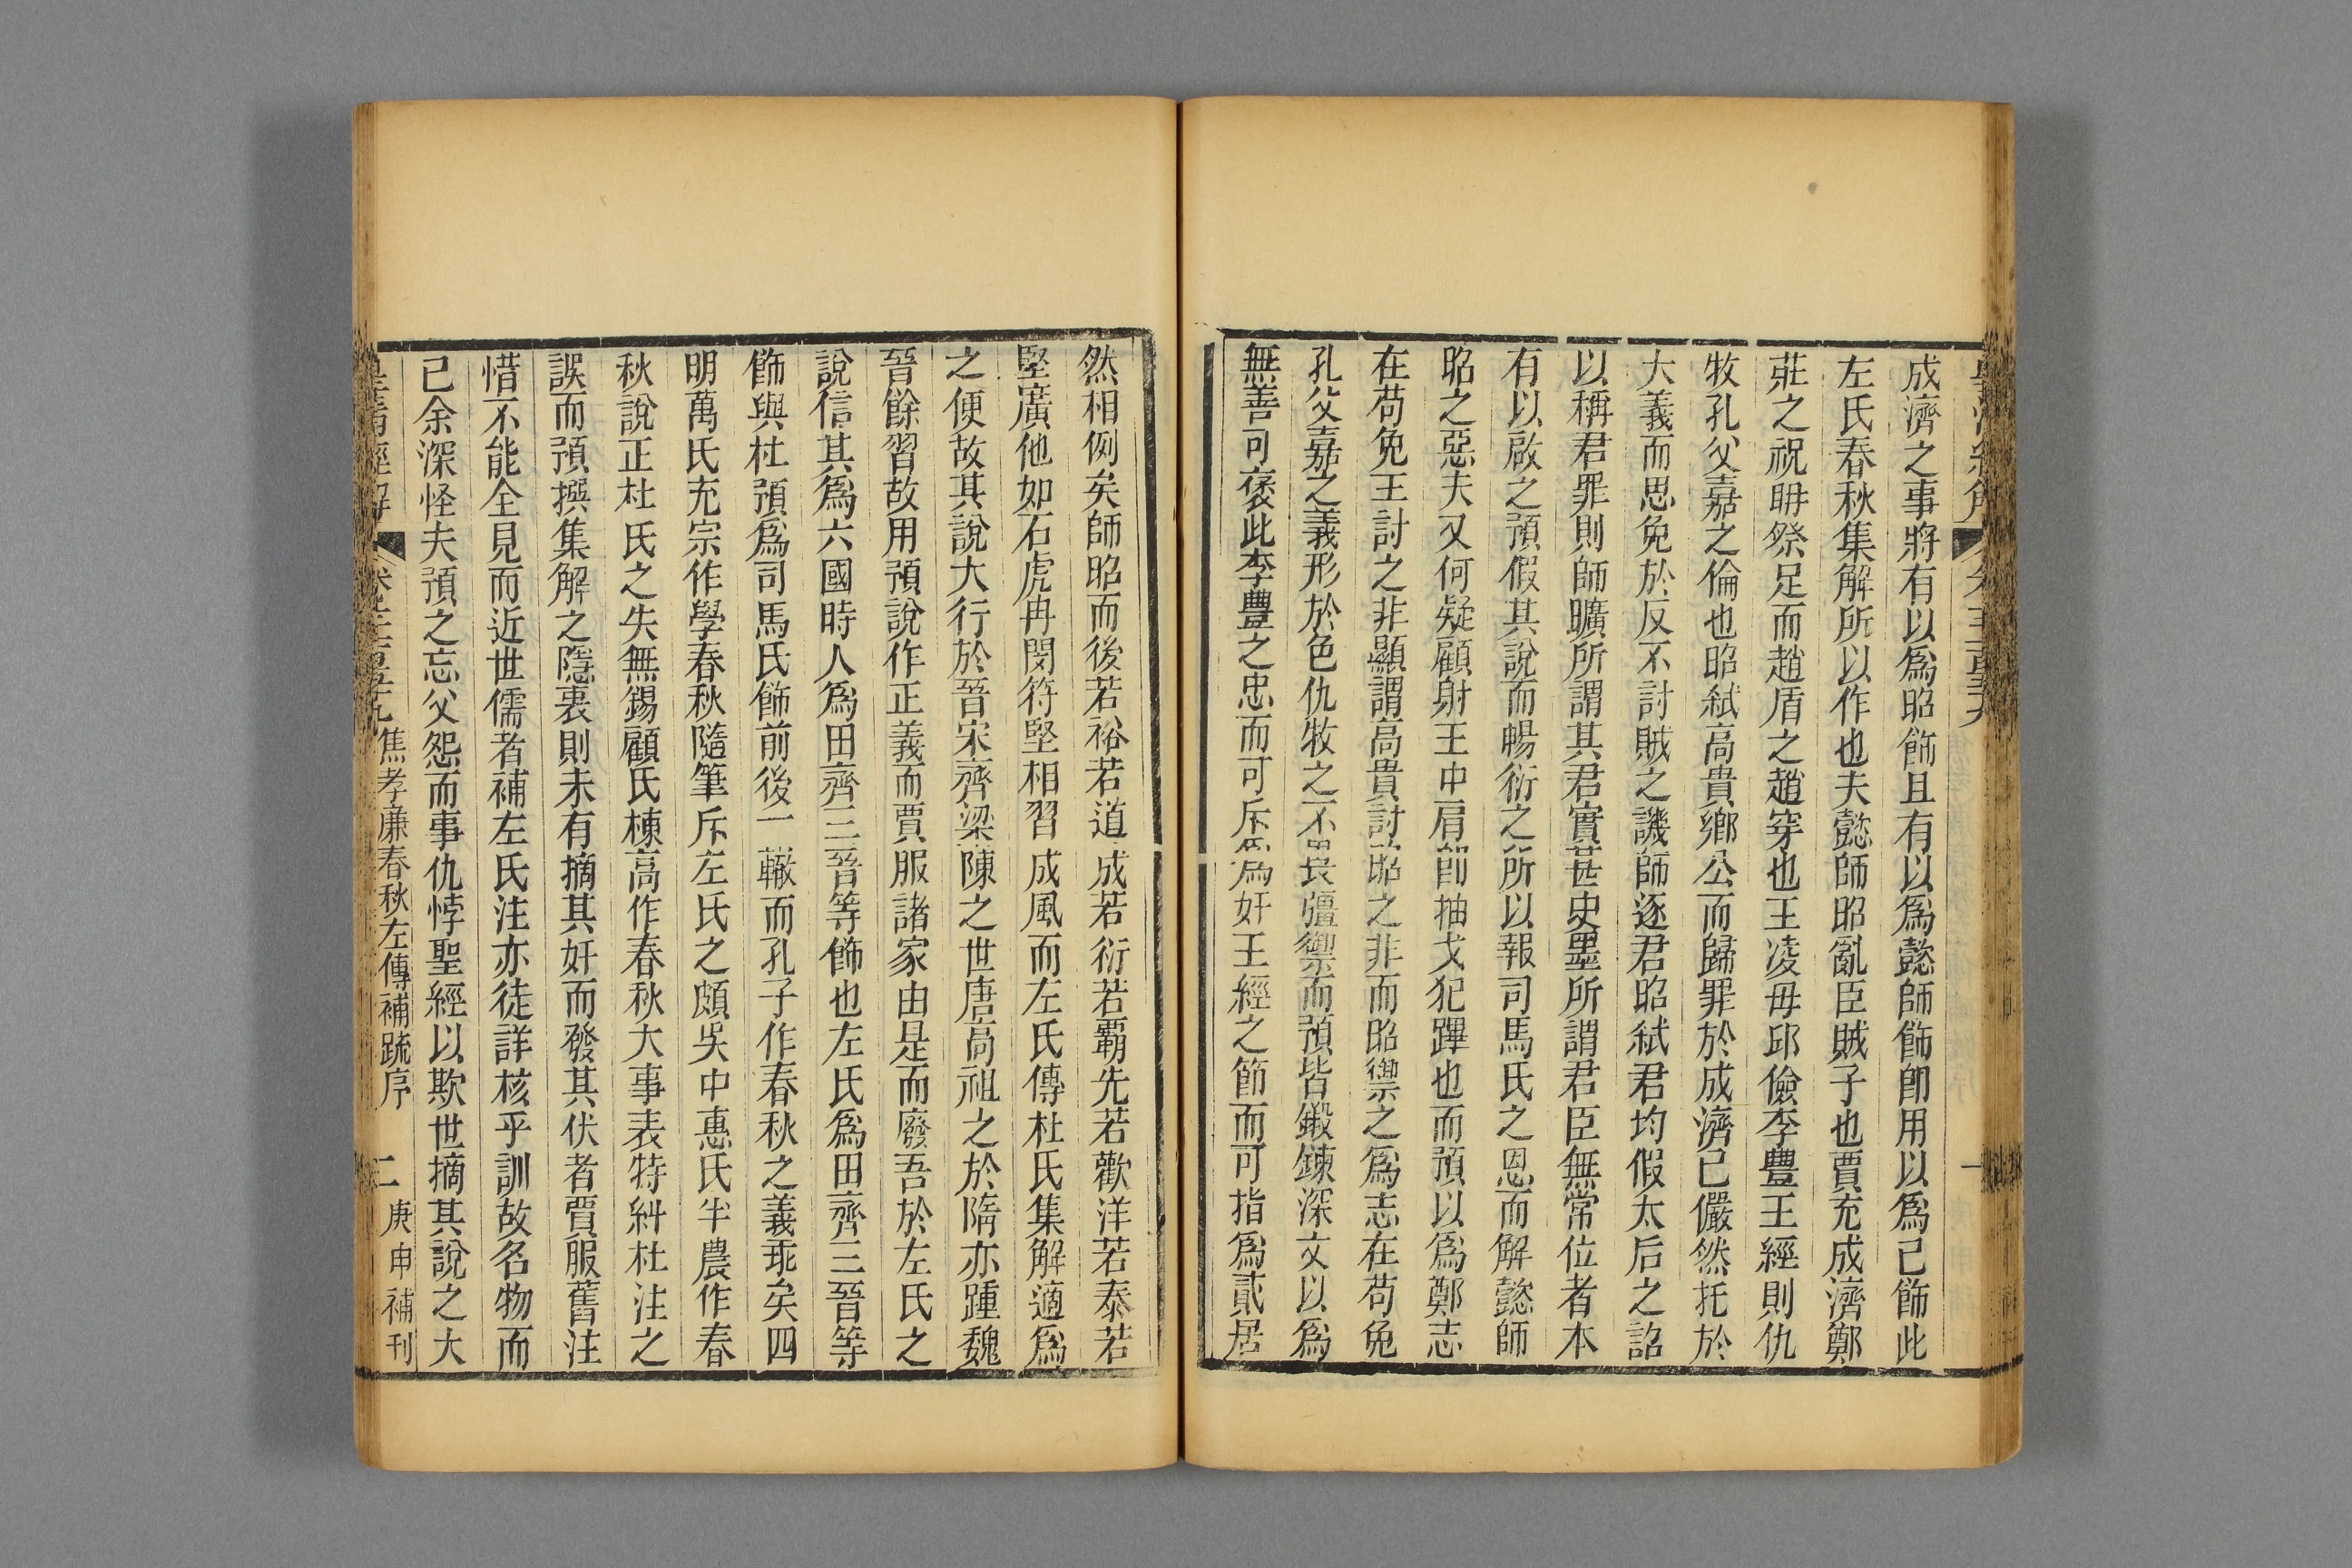 成濟之事將有以爲昭飾且有以爲懿師飾卽用以爲己飾此
左氏春秋集解所以作也夫懿師昭亂臣賊子也賈充成濟鄭
莊之祝聃祭足而趙盾之趙穿也王凌毋邱儉李豐王經則仇
牧孔父嘉之倫也昭弒高貴鄉公而歸罪於成濟已儼然托於
大義而思免於反不討賊之譏師逐君昭弒君均假太后之詔
以稱君罪則師曠所謂其君實甚史墨所謂君臣無常位者本
有以啟之預假其說而暢衍之所以報司馬氏之恩而解懿師
昭之惡夫又何疑顧射王中肩卽抽戈犯蹕也而預以爲鄭志
在苟免王討之非顯謂高貴討昭之非而昭禦之爲志在苟免
孔父嘉之義形於色仇牧之不畏彊禦而預皆鍛鍊深文以爲
無善可褒此李豐之忠而可斥爲奸王經之節而可指爲貳居
然相例矣師昭而後若裕若道成若衍若霸先若歡洋若泰若
堅廣他如石虎冉閔苻堅相習成風而左氏傳杜氏集解適爲
之便故其說大行於晉宋齊梁陳之世唐高祖之於隋亦踵魏
晉餘習故用預說作正義而賈服諸家由是而廢吾於左氏之
說信其爲六國時人爲田齊三晉等飾也左氏爲田齊三晉等
飾與杜預爲司馬氏飾前後一轍而孔子作春秋之義乖矣四
明萬氏充宗作學春秋隨筆斥左氏之頗吳中惠氏半農作春
秋說正杜氏之失無錫顧氏棟高作春秋大事表特糾杜注之
誤而預撰集解之隱衷則未有摘其奸而發其伏者賈服舊注
惜不能全見而近世儒者補左氏注亦徒詳核乎訓故名物而
已余深怪夫預之忘父怨而事仇悖聖經以欺世摘其說之大
皇清經解 卷千一百五十九 焦孝廉春秋左傳補疏序 二 庚申補刊